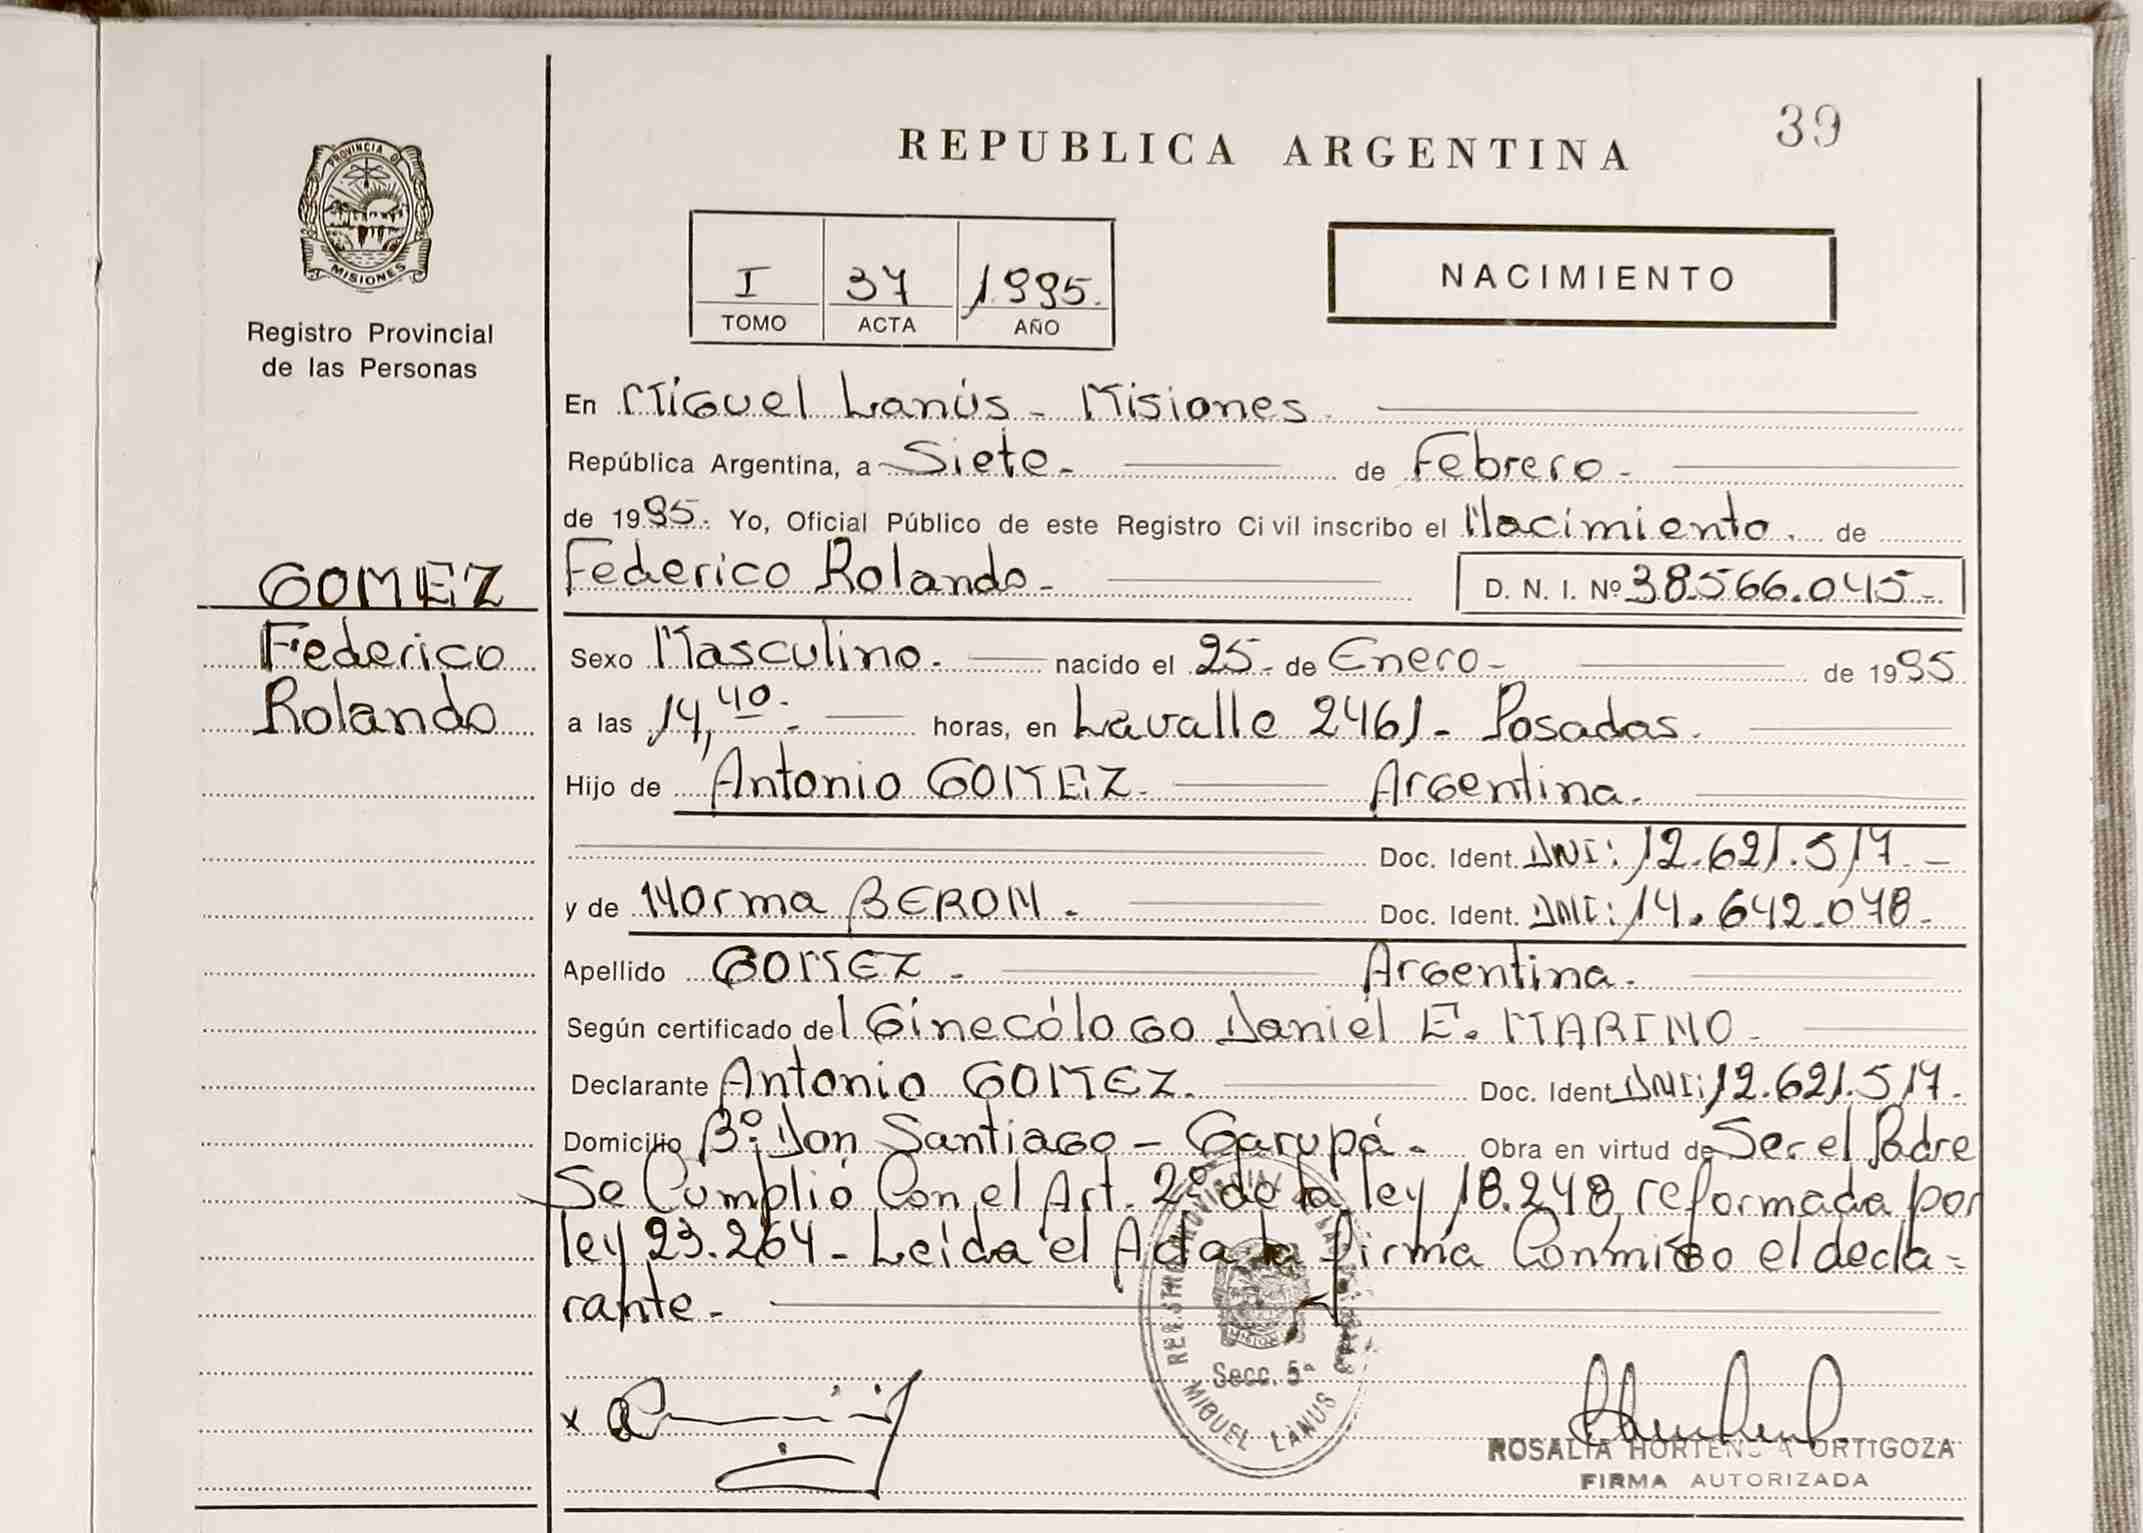 39
REPUBLICA ARGENTINA
PROVINCIA DE
MISIONES
Registro Provincial
de las Personas
I 37 1995.
TOMO ACTA AÑO
NACIMIENTO
En Miguel Lanús - Misiones.
República Argentina, a Siete - de Febrero -
de 1995. Yo, Oficial Público de este Registro Civil inscribo el Nacimiento. de
GOMEZ
Federico Rolando - D. N. I. Nº 38.566.045 -
Federico
Sexo Masculino. nacido el 25 - de Enero - de 1995
Rolando
a las 14,40 - horas, en Lavalle 2461 - Posadas.
Hijo de Antonio GOMEZ. Argentina.
Doc. Ident. DNI: 12.621.517 -
y de Norma BERON. Doc. Ident. DNI: 14.642.078 -
Apellido GOMEZ - Argentina.
Según certificado del Ginecólogo Daniel E. MARINO -
Declarante Antonio GOMEZ. Doc. Ident DNI: 12.621.517.
Domicilio Bº: Don Santiago - Garupá - Obra en virtud de Ser el Padre
Se Cumplió Con el Art. 2º de la ley 18.248, reformada por
ley 23.264 - Leída el Acta la firma Conmigo el decla-
rante -
Secc. 5ª
MIGUEL LANUS
ROSALIA HORTENSIA ORTIGOZA
FIRMA AUTORIZADA